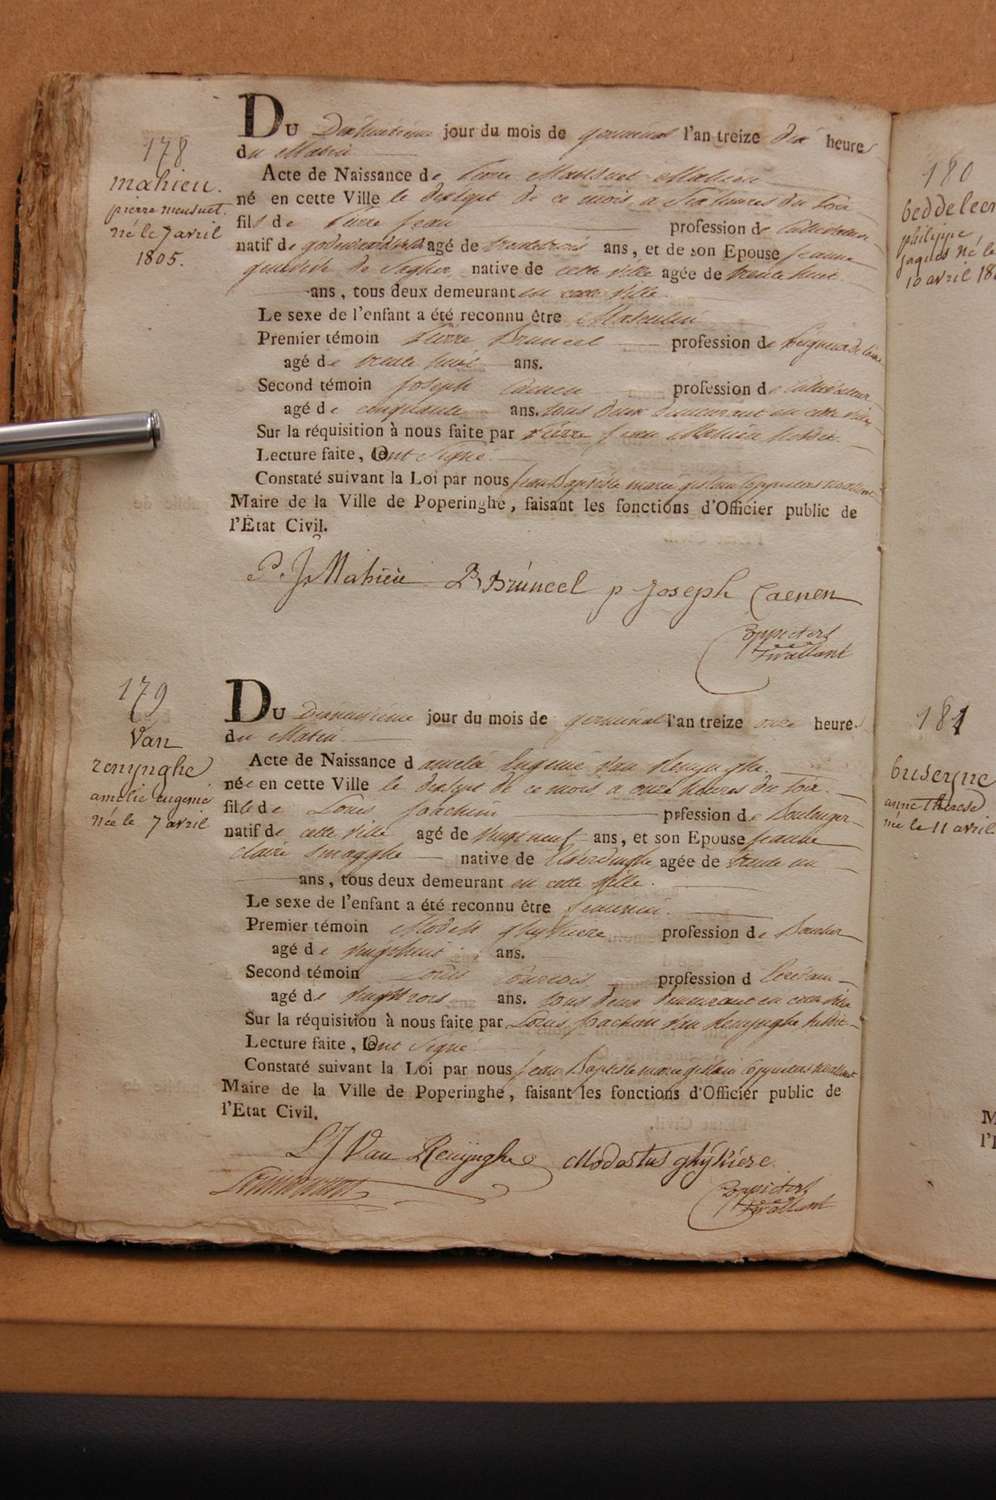 178
mahieu.
pierre mensuet.
né le 7 avril
1805.
Du Dixhuitieme jour du mois de germinal l'an treize dix heures
du Matin
Acte de Naissance de Pierre Mansuet Mahieu
né en cette Ville le dixsept de ce mois a six heures du soir
fils de Pierre Jean profession de Cultivateur
natif de agé de trentetrois ans, et de son Epouse Jeanne
de native de cette ville agée de trente huit
ans, tous deux demeurant en cette Ville.
Le sexe de l'enfant a été reconnu être Masculin
Premier témoin Pierre Bruncel profession de
agé de trente huit ans.
Second témoin Joseph Caenen profession de Cultivateur
agé de cinquante ans. tous deux demeurant en cette ville
Sur la réquisition à nous faite par Pierre Jean Mahieu
Lecture faite, ont Signé
Constaté suivant la Loi par nous Jean Baptiste marie
Maire de la Ville de Poperinghe, faisant les fonctions d'Officier public de
l'Etat Civil.
P. J Mahieu P Bruncel p Joseph Caenen
179
Van
renynghe
amelie eugenie
née le 7 avril
Du jour du mois de germinal l'an treize onze heures
du Matin
Acte de Naissance d amelie Eugenie Van Renynghe
née en cette Ville le dixsept de ce mois a onze heures du soir
fille de Louis Joachim prsfession de Boulanger
natif de cette ville agé de vingt neuf ans, et son Epouse Jeanne
claire Smagghe native de Elverdinghe agée de trente un
ans, tous deux demeurant en cette Ville.
Le sexe de l'enfant a été reconnu être feminin
Premier témoin Modeste ghykiere profession de Boucher
agé de vingthuit ans.
Second témoin Louis profession d
agé de vingttrois ans. tous deux demeurant en cette ville
Sur la réquisition à nous faite par Louis Joachim Van Renynghe
Lecture faite, ont Signé
Constaté suivant la Loi par nous Jean Baptiste marie
Maire de la Ville de Poperinghe, faisant les fonctions d'Officier public de
l'Etat Civil.
L J Van Renynghe Modestus ghykiere
180
philippe
jaques né le
10 avril
181
buseyne
anne therese
née le 11 avril